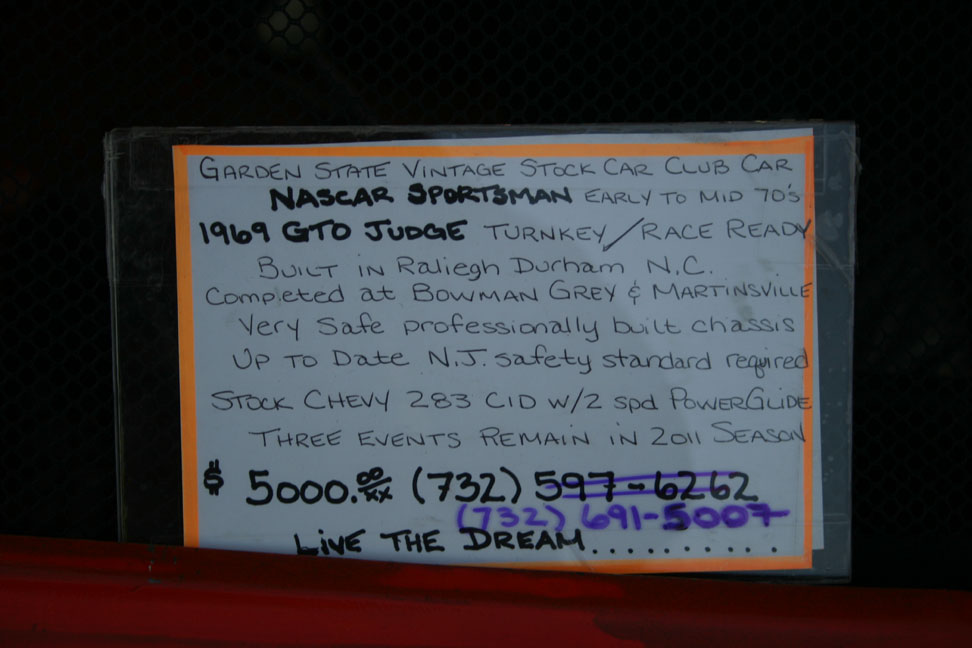 GARDEN STATE VINTAGE STOCK CAR CLUB CAR
NASCAR SPORTSMAN EARLY TO MID 70's
1969 GTO JUDGE TURNKEY/RACE READY
BUILT IN Raliegh Durham N.C.
Completed at BOWMAN GREY & MARTINSVILLE
Very Safe professionally built chassis
UP TO Date N.J. safety standard required
STOCK CHEVY 283 CID W/2 spd POWERGLIDE
THREE EVENTS REMAIN IN 2011 SEASON
$ 5000.00/xx (732) 597-6262
(732) 691-5007
LIVE THE DREAM..........